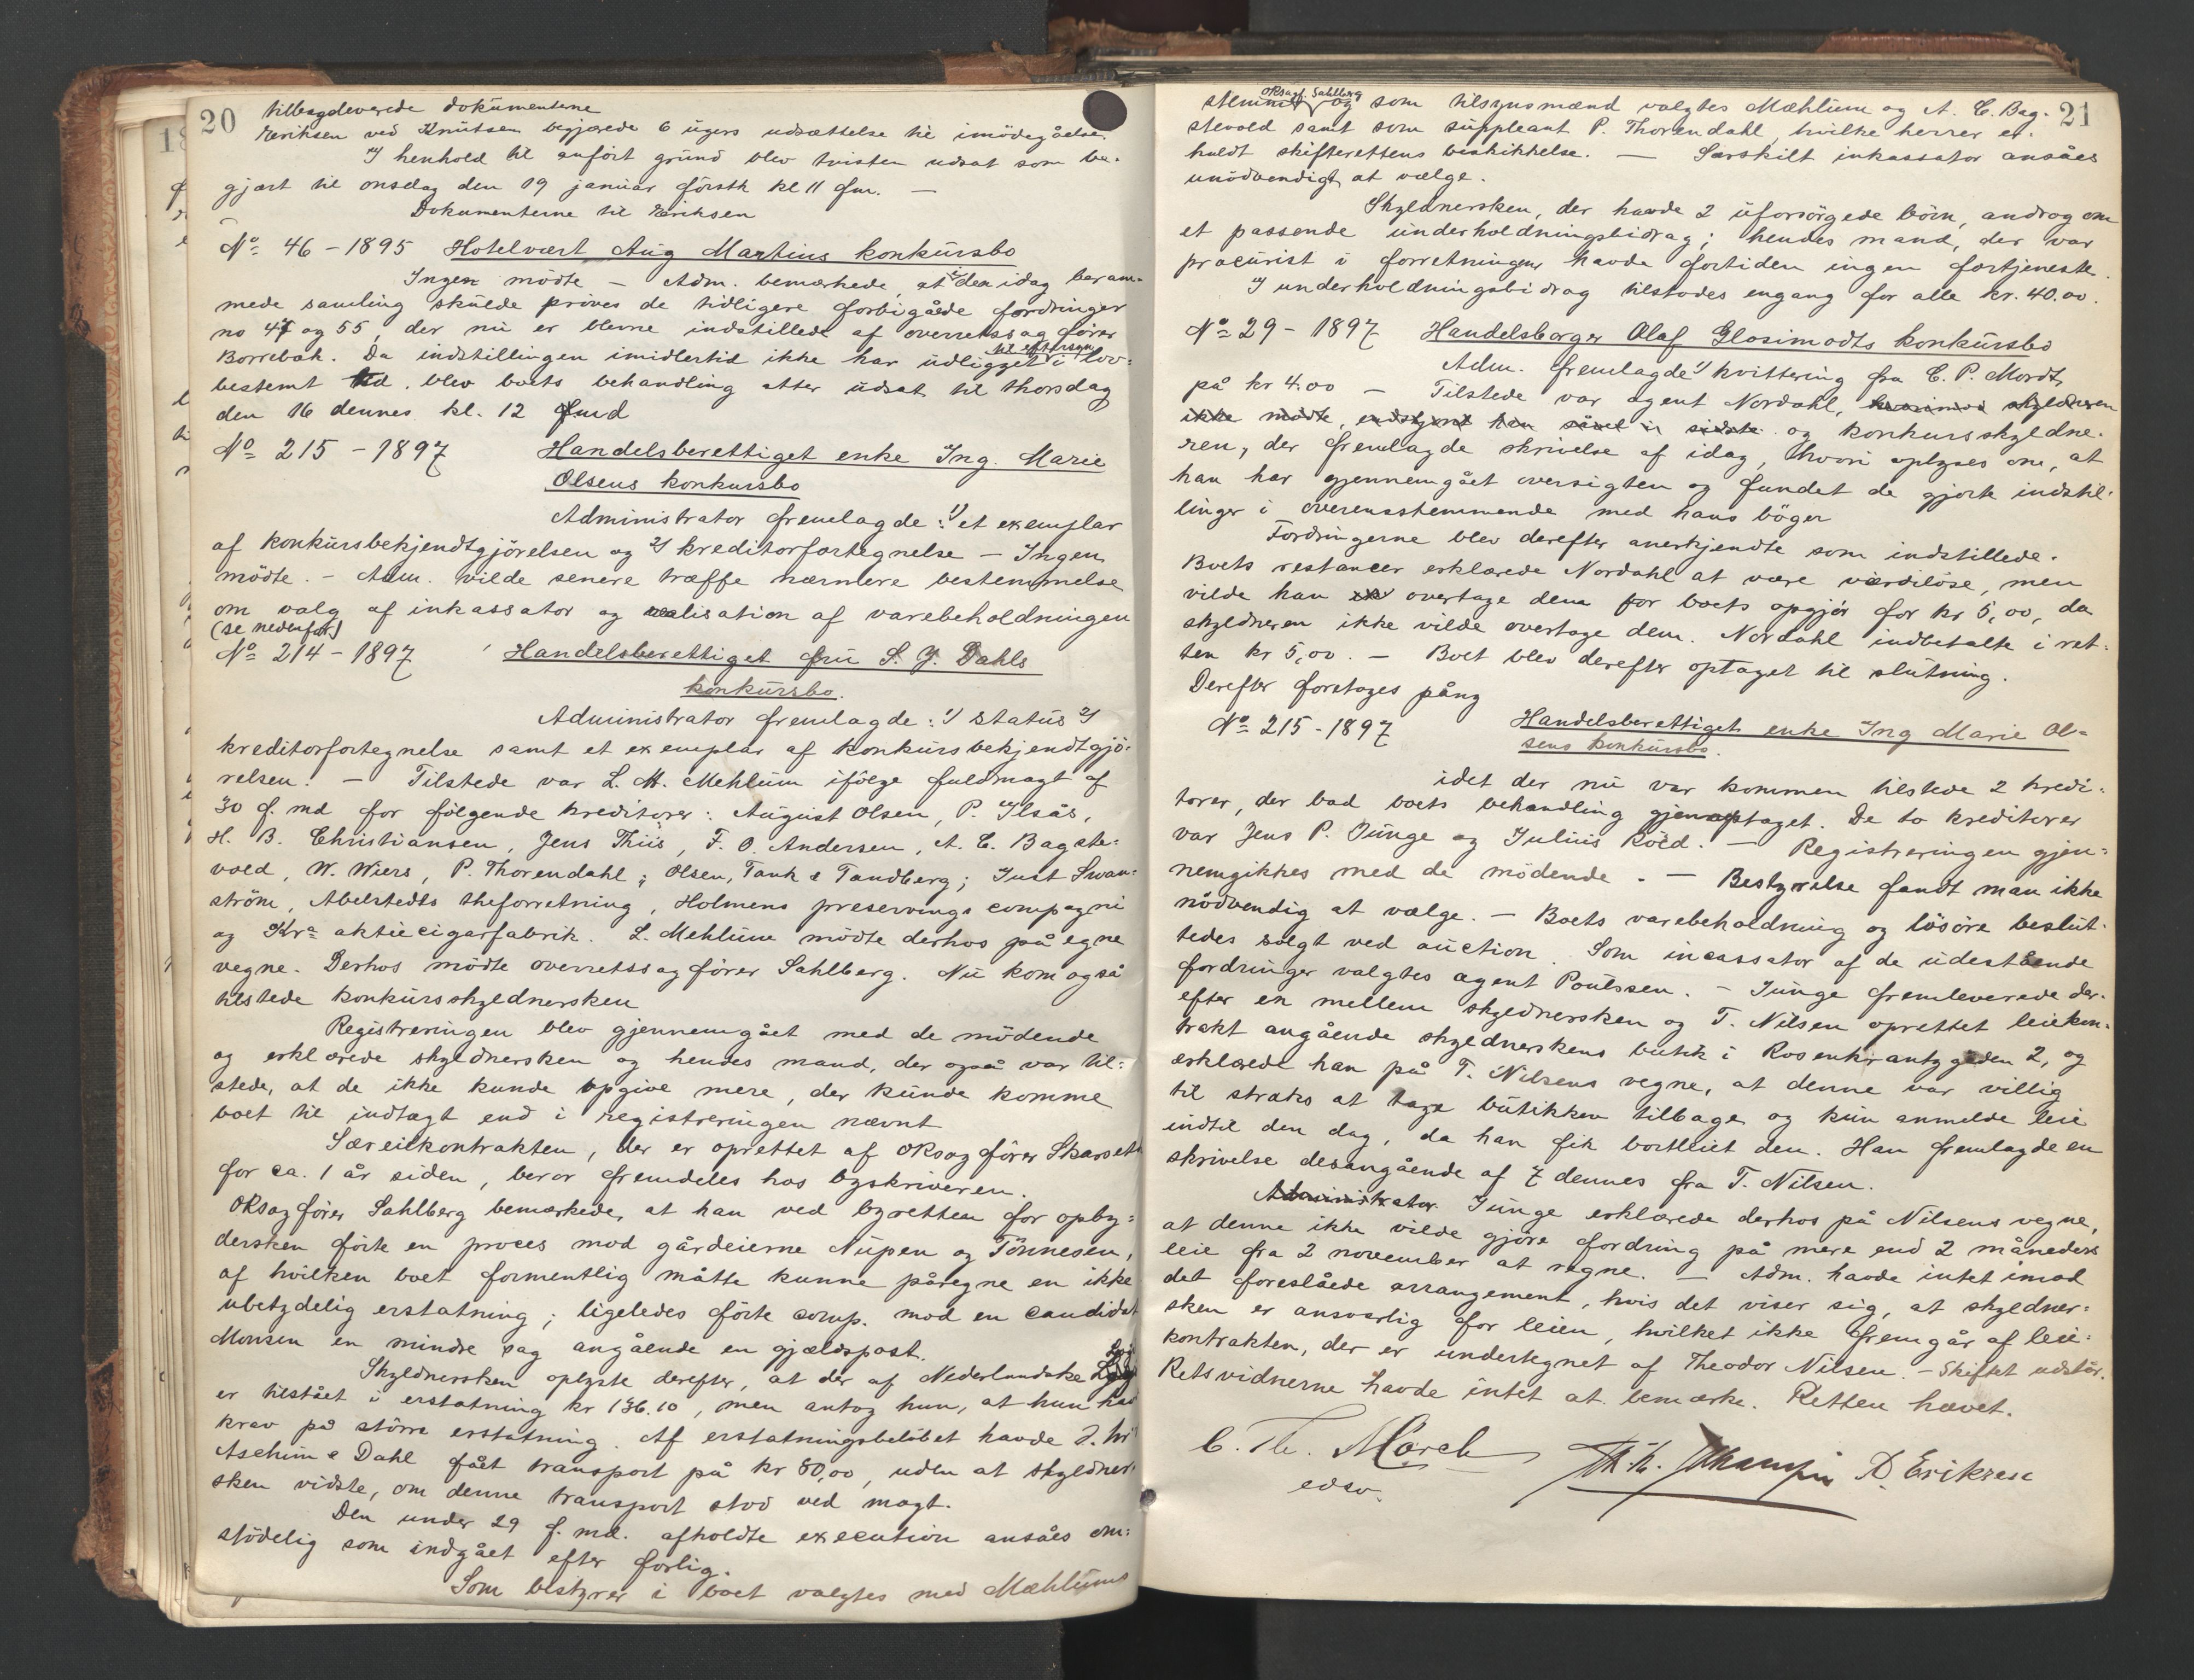 20
tilbagdeverede dokumenterne
Eeriksen ved Knutsen begjærede 6 ugers udsættelse til imödegåelse.
I henhold til anfört grund blev tvisten udsat som be-
gjært til onsdag den 19 januar förstk kl 11 fm. —
Dokumenterne til Eeriksen
No 46 - 1895 Hotelvært Aug Martins konkursbo
Ingen mödte — Adm. bemærkede, at i den idag beram-
mede samling skulde pröves de tidligere forbigåede fordringer
no 47 og 55, der nu er blevne indstillede af overretssagförer
Borrebæk. Da indstillingen imidlertid ikke har udligget til eftersyn i lov-
bestemt tid, blev boets behandling atter udsat til thorsdag
den 16 dennes kl. 12 fmd
No 215 - 1897 Handelsberettiget enke Ing. Marie
Olsens konkursbo
Administrator fremlagde: 1) et exemplar
af konkursbekjendtgjörelsen og 2) kreditorfortegnelse — Ingen
mödte. — Adm. vilde senere træffe nærmere bestemmelse
om valg af inkassator og realisation af varebeholdningen
(se nedenfor)
No 214 - 1897 Handelsberettiget fru S. J. Dahls
konkursbo.
Administrator fremlagde: 1) status 2)
kreditorfortegnelse samt et exemplar af konkursbekjendtgjö-
relsen. — Tilstede var L. M. Mehlum ifölge fuldmagt af
30 f. md for fölgende kreditorer: August Olsen, P. Ilsås,
H. B. Christiansen, Jens Thiis, F. O. Andersen, A. C. Bagste-
vold, W. Wiers, P. Thorendahl; Olsen, Tank & Tandberg; Just Swan-
ström, Abelstedts theforretning, Holmens preservings compagni
og Kra aktiecigarfabrik. L. Mehlum mödte derhos på egne
vegne. Derhos mödte overretssagförer Sahlberg. Nu kom også
tilstede konkursskyldnersken
Registreringen blev gjennemgået med de mödende
og erklærede skyldnersken og hendes mand, der også var til-
stede, at de ikke kunde opgive mere, der kunde komme
boet til indtægt end i registreringen nævnt
Særeiekontrakten, der er oprettet af oRsagförer Skarseth
for ca. 1 år siden, beror fremdeles hos byskriveren.
oRsagförer Sahlberg bemærkede, at han ved byretten for opby-
dersken förte en proces mod gårdeierne Nupen og Tönnesen,
af hvilken boet formentlig måtte kunne påregne en ikke
ubetydelig erstatning; ligeledes förte comp. mod en candidat
Monsen en mindre sag angående en gjældspost.
Skyldnersken oplyste derefter, at der af Nederlandske Lloyd
er tilstået i erstatning kr 136.10, men antog hun, at hun har
krav på större erstatning. Af erstatningsbelöbet havde d. hr
Aschim & Dahl fået transport på kr 80,00, uden at skyldner-
sken vidste, om denne transport stod ved magt.
Den under 29 f. md. afholdte execution ansåes om-
stödelig som indgået efter forlig.
Som bestyrer i boet valgtes med Mæhlums
21
stemme oRsagf. Sahlberg og som tilsynsmænd valgtes Mæhlum og A. C. Bag-
stevold samt som suppleant P. Thorendahl, hvilke herrer er-
huldt skifterettens beskikkelse. — Særskilt inkassator ansåes
unödvendigt at vælge.
Skyldnersken, der havde 2 uforsörgede börn, androg om
et passende underholdningsbidrag; hendes mand, der var
procurist i forretningen havde fortiden ingen fortjeneste.
I underholdningsbidrag tilstodes engang for alle kr. 40.00.
No 29 - 1897 Handelsborger Olaf Glosimodts konkursbo
Adm. fremlagde 1) kvittering fra C. P. Mordt
på kr 4.00 — Tilstede var agent Nordahl, skyldneren
ikke mödte, endskjönt han såvel i sidste og konkursskyldne-
ren, der fremlagde skrivelse af idag, hvori oplyses om, at
han har gjennemgået oversigten og fundet de gjorte indstil-
linger i overensstemmende med hans böger
Fordringerne blev derefter anerkjendte som indstillede.
Boets restancer erklærede Nordahl at være værdilöse, men
vilde han overtage dem for boets opgjör for kr 5,00, da
skyldneren ikke vilde overtage dem. Nordahl indbetalte i ret-
ten kr 5,00. — Boet blev derefter optaget til slutning.
Derefter foretoges påny
No 215 - 1897 Handelsberettiget enke Ing Marie Ol-
sens konkursbo.
idet der nu var kommen tilstede 2 kredi-
torer, der bad boets behandling gjenoptaget. De to kreditorer
var Jens P. Junge og Julius Röed. — Registreringen gjen-
nemgikkes med de mödende. — Bestyrelse fandt man ikke
nödvendig at vælge. — Boets varebeholdning og lösöre beslut-
tedes solgt ved auction. Som incassator af de udestående
fordringer valgtes agent Poulssen. — Junge fremleverede der-
efter en mellem skyldnersken og T. Nilsen oprettet leiekon-
trakt angående skyldnerskens butik i Rosenkrantzgaden 2, og
erklærede han på T. Nilsens vegne, at denne var villig
til straks at tage butikken tilbage og kun anmelde leie
indtil den dag, da han fik bortleiet den. Han fremlagde en
skrivelse desangående af 7 dennes fra T. Nilsen.
Administrator Junge erklærede derhos på Nilsens vegne,
at denne ikke vilde gjöre fordring på mere end 2 måneders
leie fra 2 november at regne. — Adm. havde intet imod
det foreslåede arrangement, hvis det viser sig, at skyldner-
sken er ansvarlig for leien, hvilket ikke fremgår af leie-
kontrakten, der er undertegnet af Theodor Nilsen. — Skiftet udstår.
Retsvidnerne havde intet at bemærke. Retten hævet.
C. Th. Mörch
edsv.
D. Eriksen